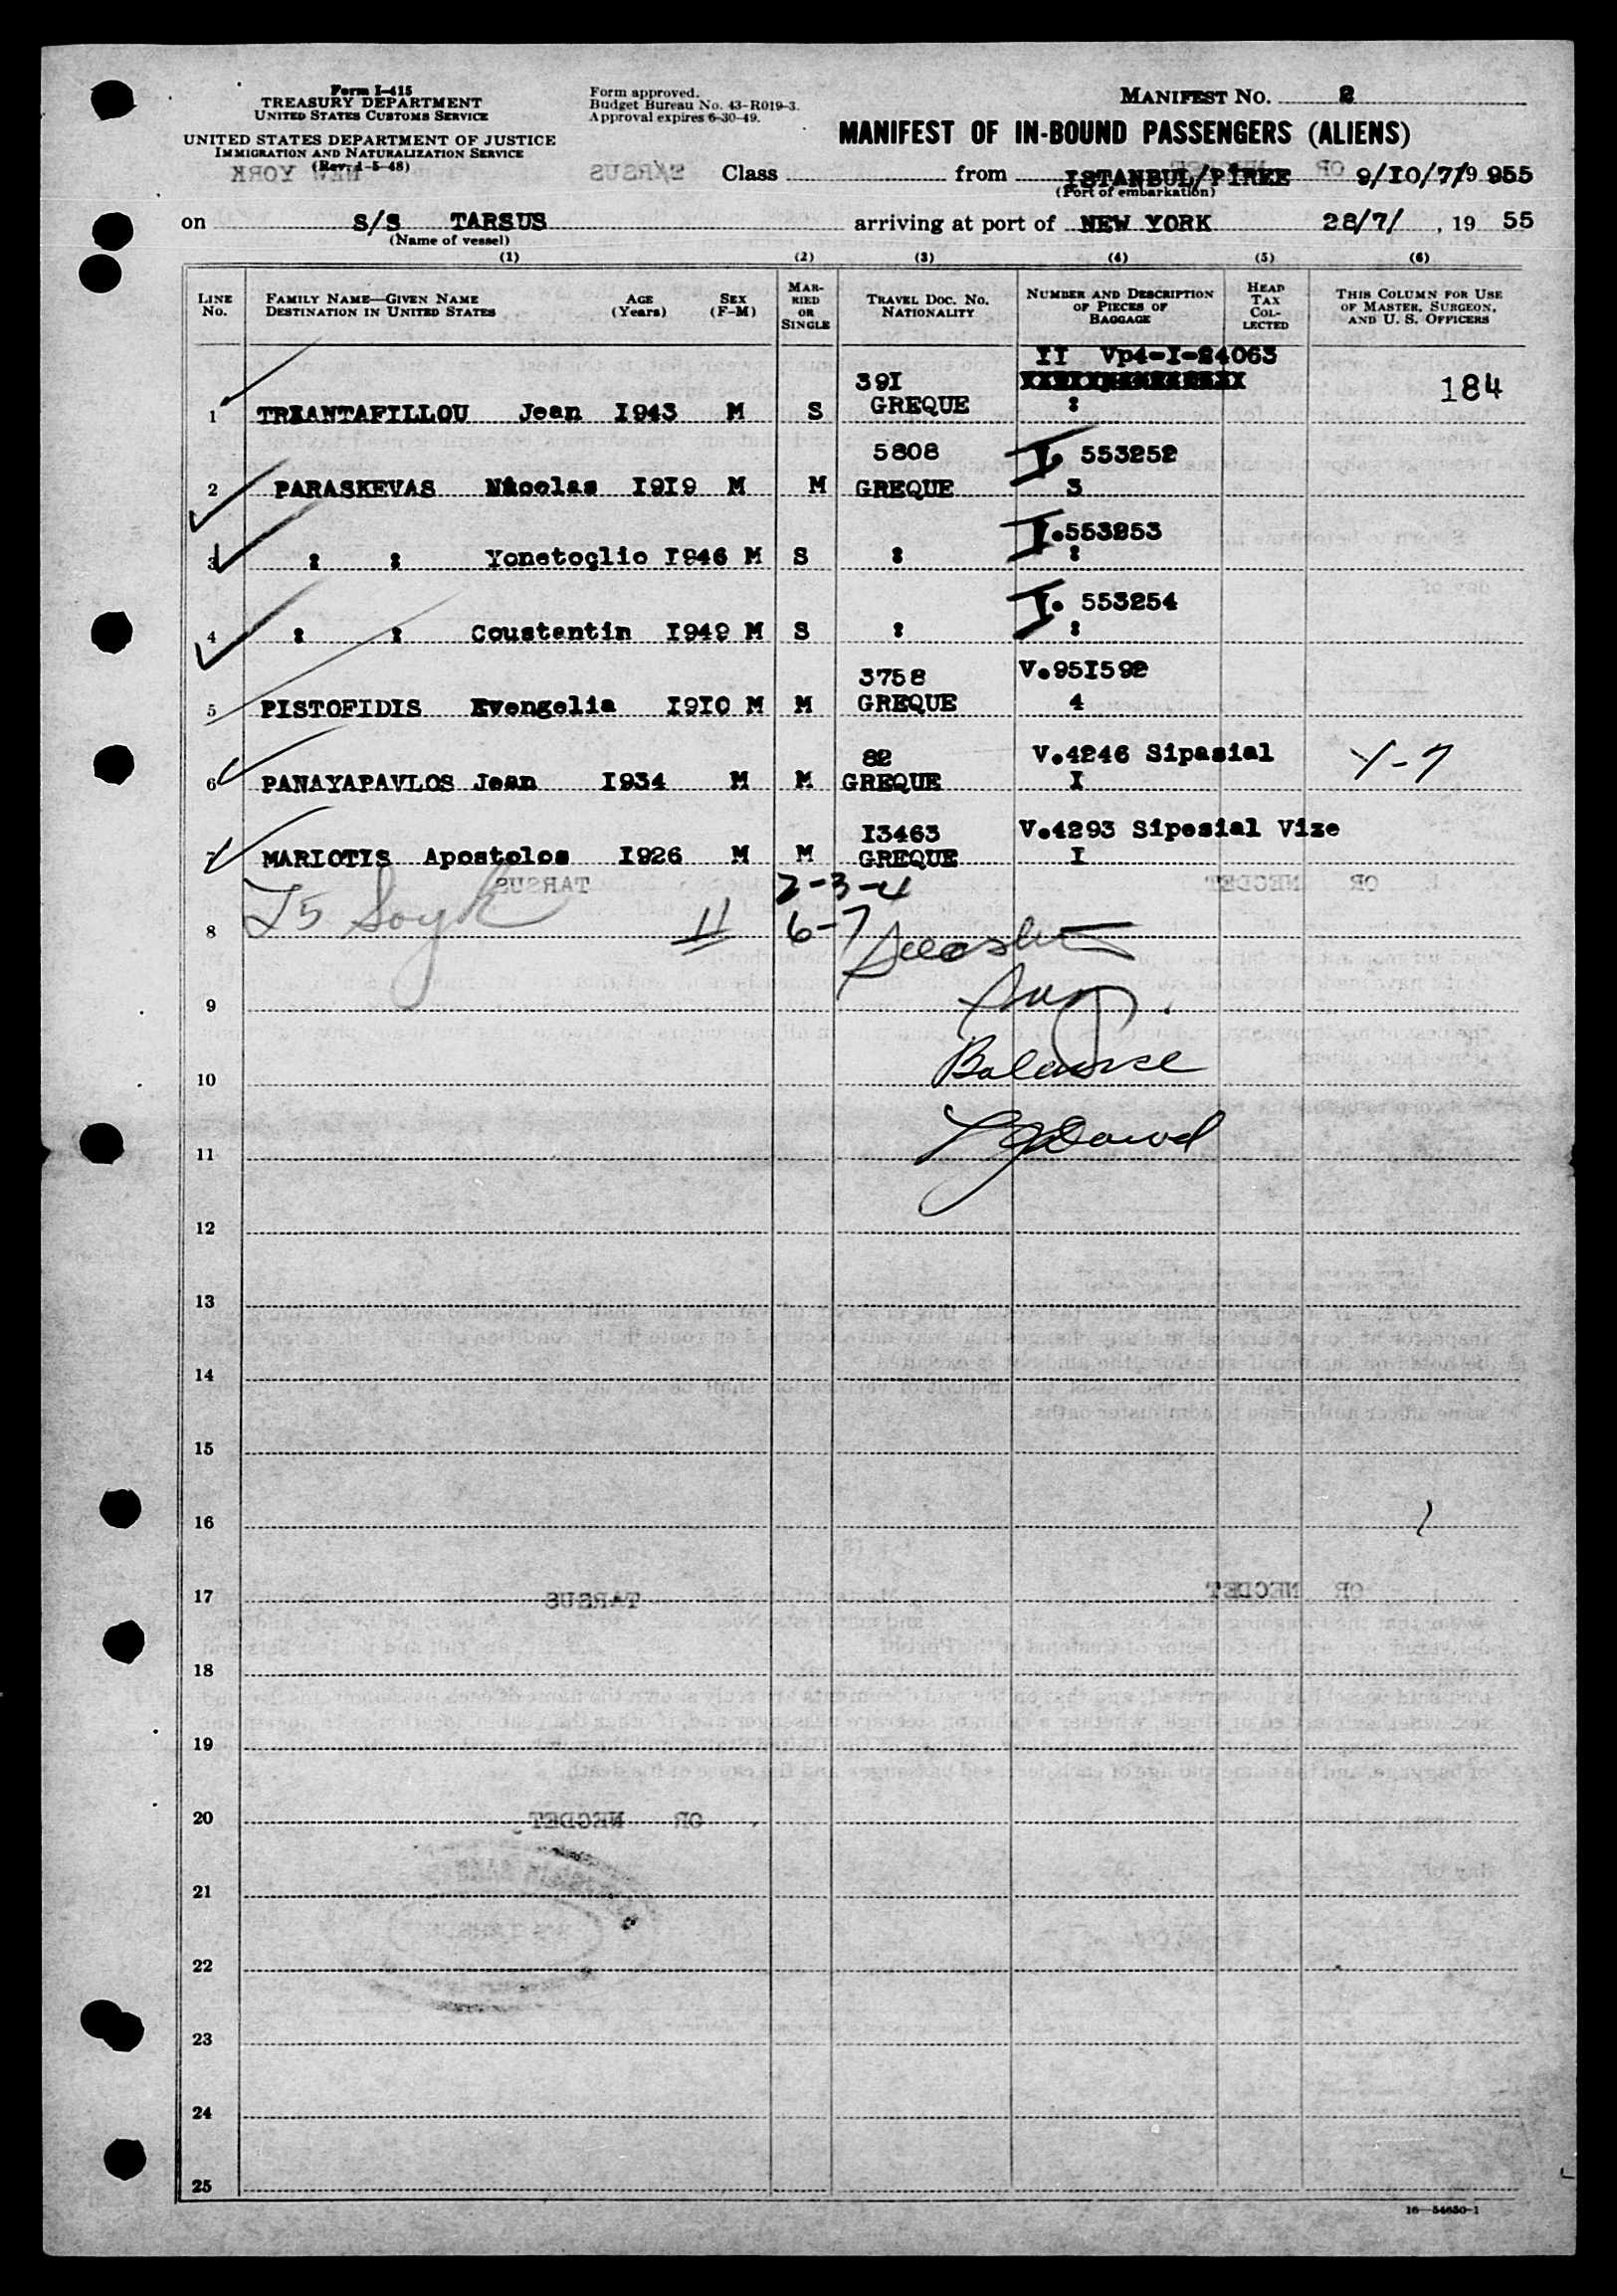 Form I-415
TREASURY DEPARTMENT
UNITED STATES CUSTOMS SERVICE
UNITED STATES DEPARTMENT OF JUSTICE
IMMIGRATION AND NATURALIZATION SERVICE
(Rev. 4-5-48)
Form approved.
Budget Bureau No. 43-R019-3.
Approval expires 6-30-49.
MANIFEST NO. 2
MANIFEST OF IN-BOUND PASSENGERS (ALIENS)
Class from ISTANBUL/PIREE 9/I0/7/19 955
(Port of embarkation)
on S/S TARSUS arriving at port of NEW YORK 28/7/ , 19 55
(Name of vessel)
(1) (2) (3) (4) (5) (6)
LINE NO. FAMILY NAME—GIVEN NAME DESTINATION IN UNITED STATES AGE (Years) SEX (F-M) MARRIED OR SINGLE TRAVEL DOC. NO. NATIONALITY NUMBER AND DESCRIPTION OF PIECES OF BAGGAGE HEAD TAX COLLECTED THIS COLUMN FOR USE OF MASTER, SURGEON, AND U. S. OFFICERS
II Vp4-I-24063
39I 184
1 TRIANTAFILLOU Jean I943 M S GREQUE :
5808 I. 553252
2 PARASKEVAS Nicolas I9I9 M M GREQUE 3
I.553253
3 : : Yonetoglio I946 M S : :
I. 553254
4 : : Coustentin I949 M S : :
3758 V.95I592
5 PISTOFIDIS Evengelia I9I0 M M GREQUE 4
82 V.4246 Sipasial
6 PANAYAPAVLOS Jean I934 M M GREQUE I
I3463 V.4293 Sipesial Vize
7 MARIOTIS Apostolos I926 M M GREQUE I
TARSUS OR NECDET
2-3-4
8 11 6-7
9
10 Balance
11
12
13
14
15
16
17 TARSUS OR NECDET
18
19
20 OR NECDET
21
22
23
24
25
16—54650-1